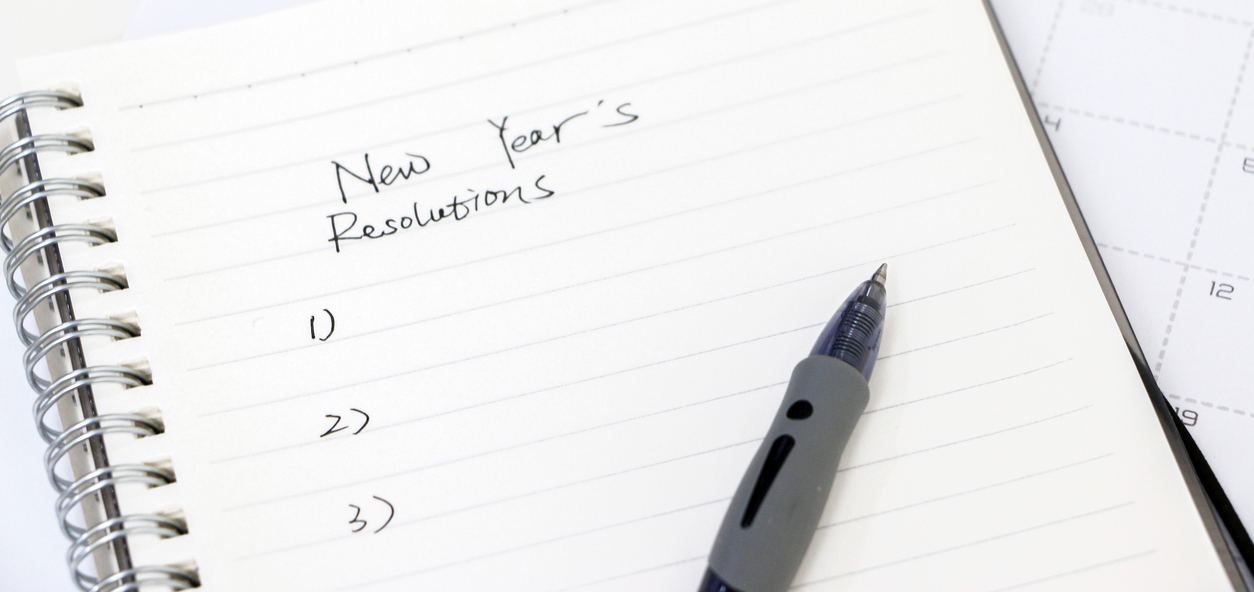 New Year's
Resolutions
1)
2)
3)
28
4
5
12
19